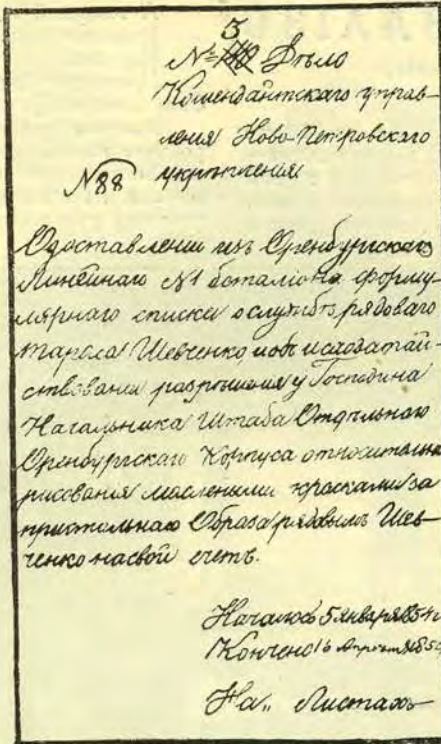 3
№ Дѣло
Комендантскаго управ-
ленія Ново-Петровскаго
укрѣпленія
№88
О доставленіи изъ Оренбургскаго
Линейнаго №1 баталіона форму-
лярнаго списка о службѣ рядоваго
Тараса Шевченко и объ исходатай-
ствованіи разрѣшенія у Господина
Начальника Штаба Отдѣльнаго
Оренбургскаго Корпуса относительно
рисованія маслеными красками за
пристольнаго Образа рядовымъ Шев-
ченко на свой счетъ.
Началось 5 января 1854
Кончено 16 Апрѣля 1854
На „ Листахъ